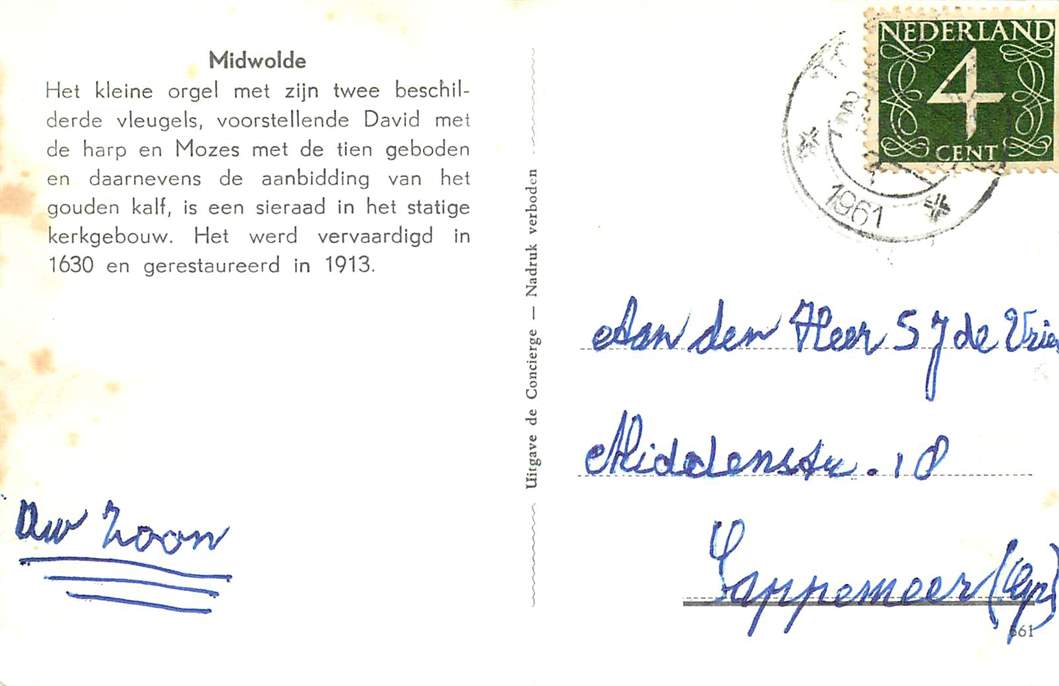 Midwolde
Het kleine orgel met zijn twee beschil-
derde vleugels, voorstellende David met
de harp en Mozes met de tien geboden
en daarnevens de aanbidding van het
gouden kalf, is een sieraad in het statige
kerkgebouw. Het werd vervaardigd in
1630 en gerestaureerd in 1913.
Uw Zoon
Uitgave de Concierge — Nadruk verboden
NEDERLAND
4
CENT
1961
Aan den Heer S J de Vries
Middenstr. 18
Sappemeer (Gr)
661